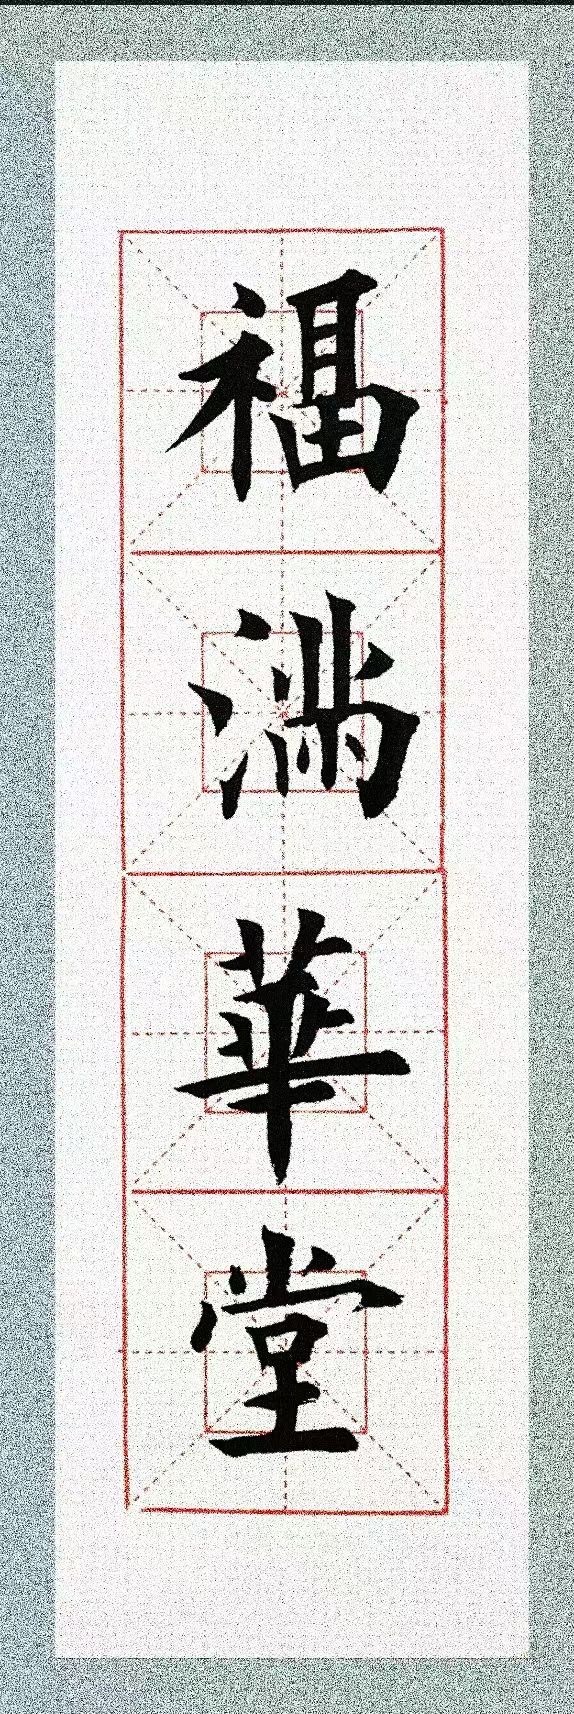 福滿華堂